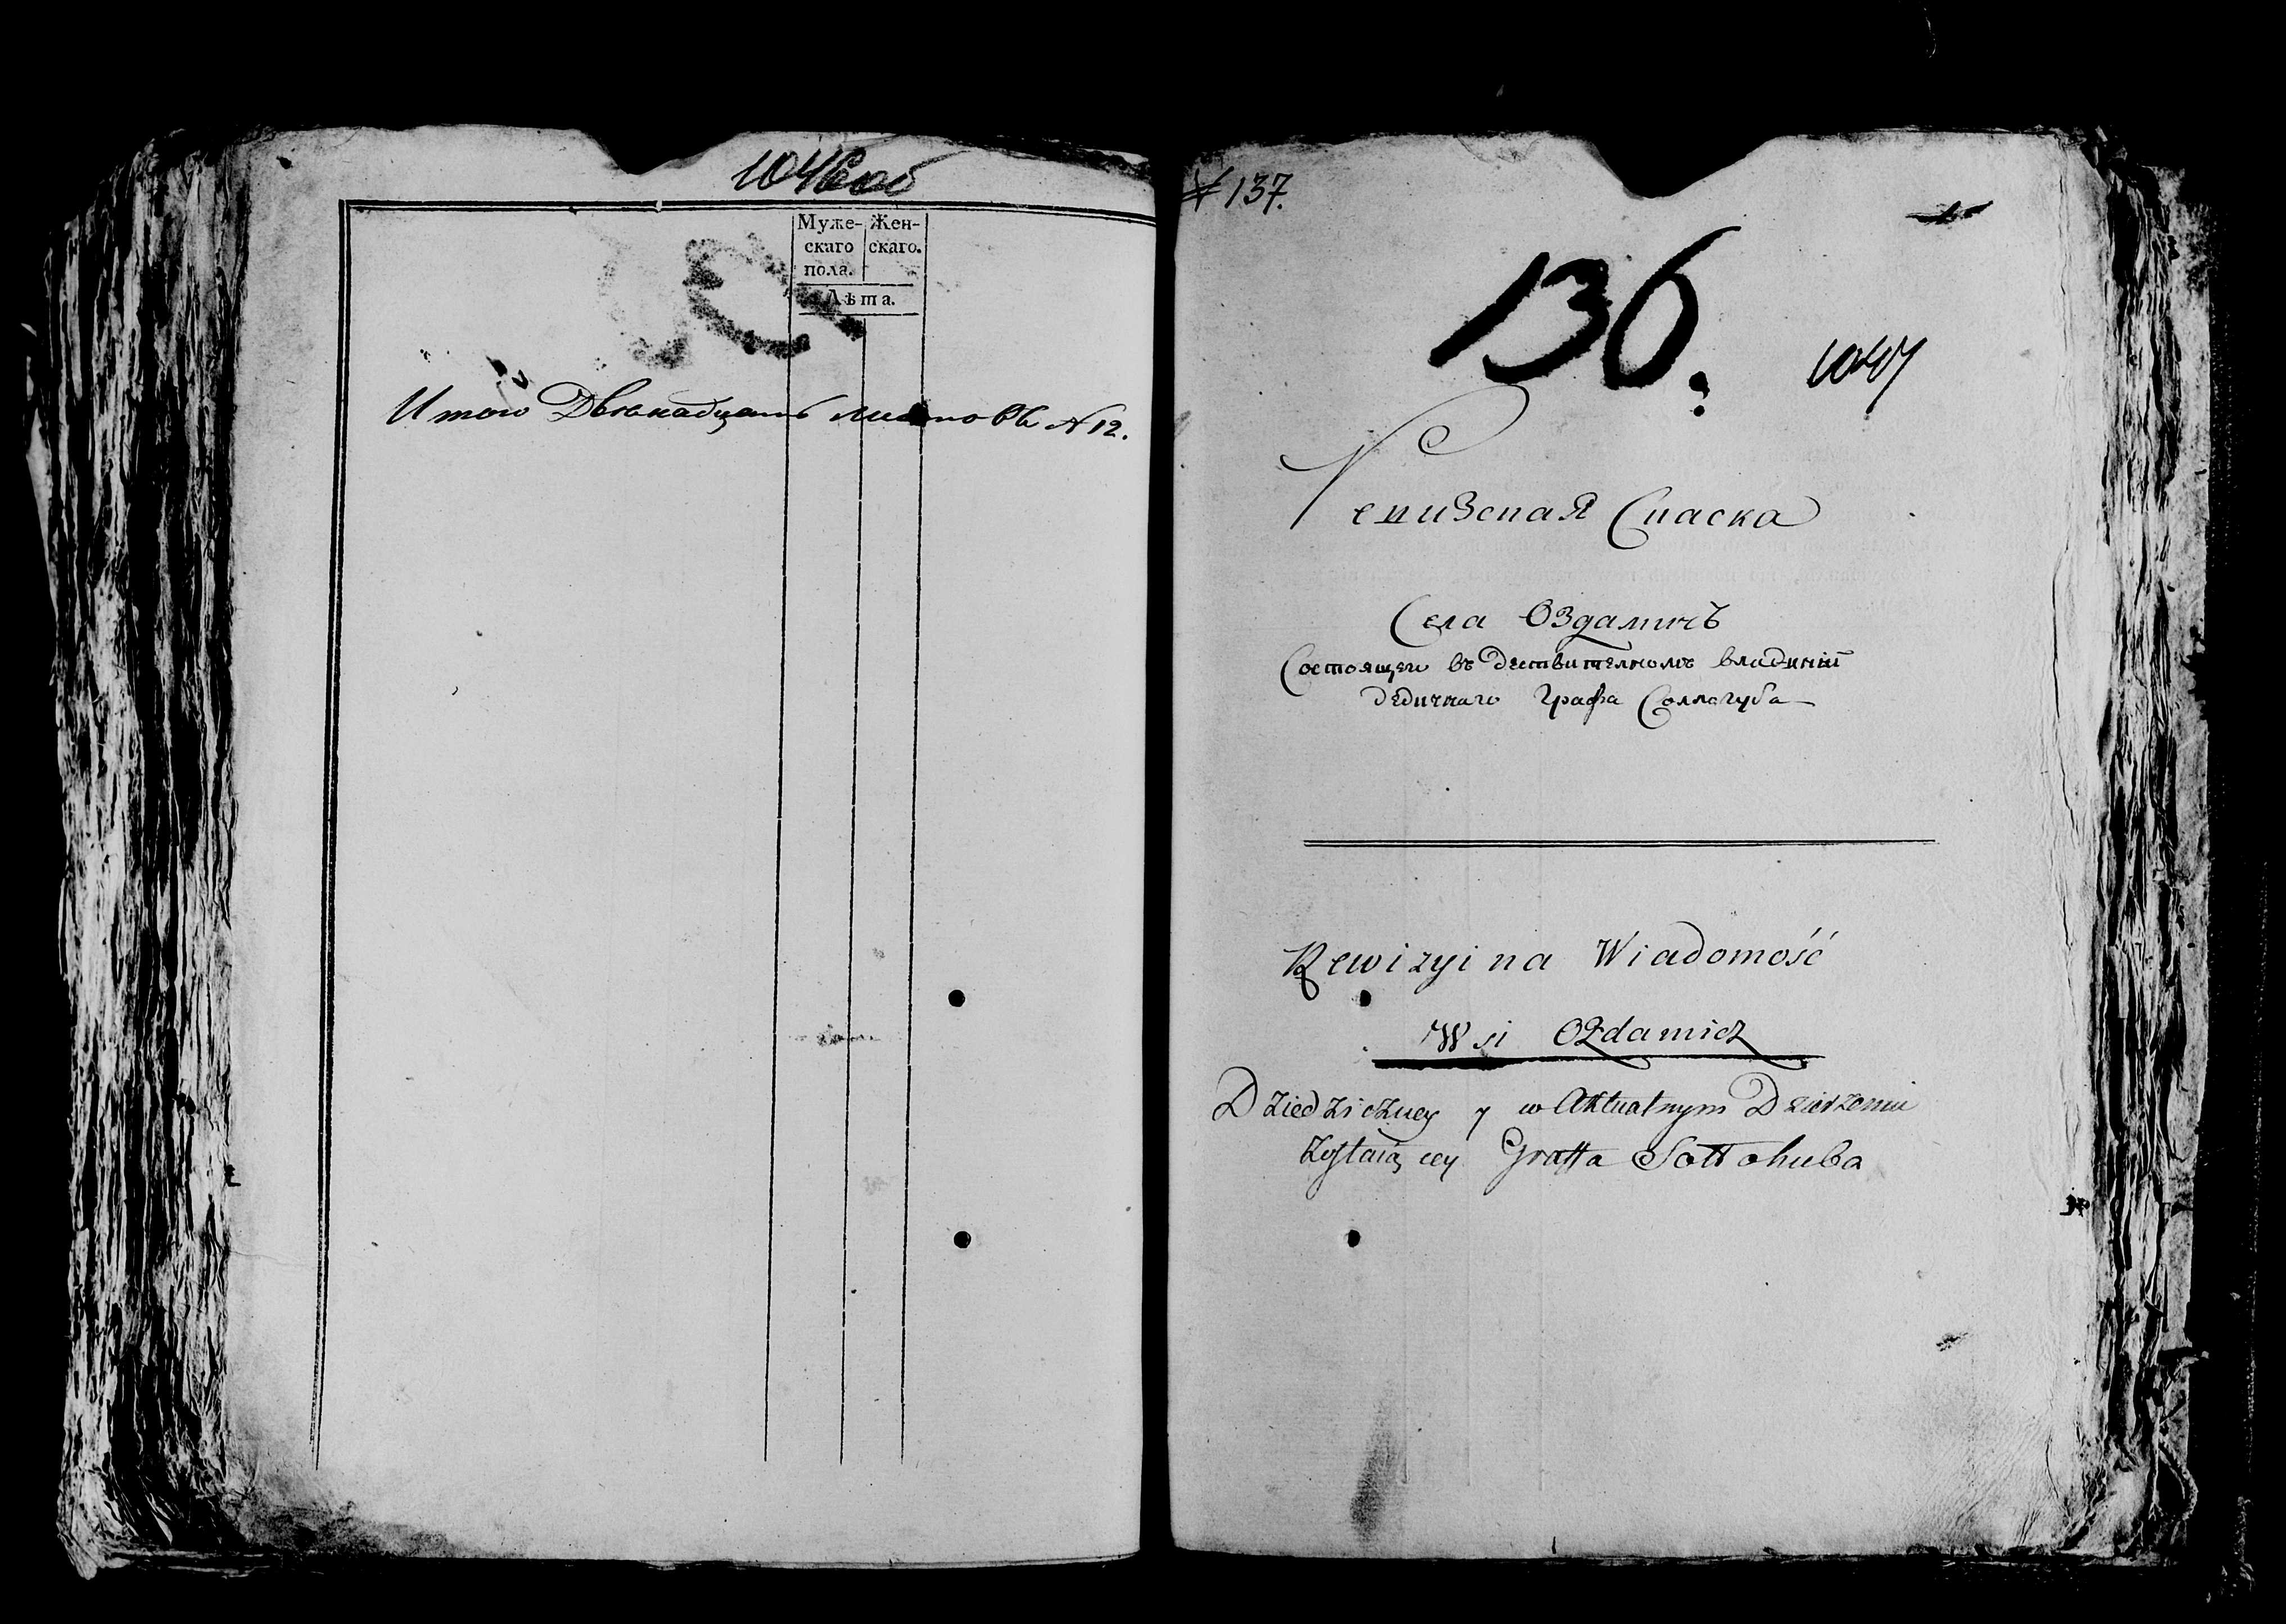 1046об
Муже- Жен-
скаго скаго.
пола.
Лѣта.
Итого Двѣнадцать листовъ № 12.
№ 137.
136.
1047
Ревизская Скаска
Села Оздамичъ
Состоящего въ дѣствителномъ владѣнїй
дѣдичнаго Графа Соллогуба
Rewizyina Wiadomość
Wsi Ozdamicz
Dziedziczney y w Aktualnym Dzierżeniu
Zostaiącey Graffa Sołłohuba